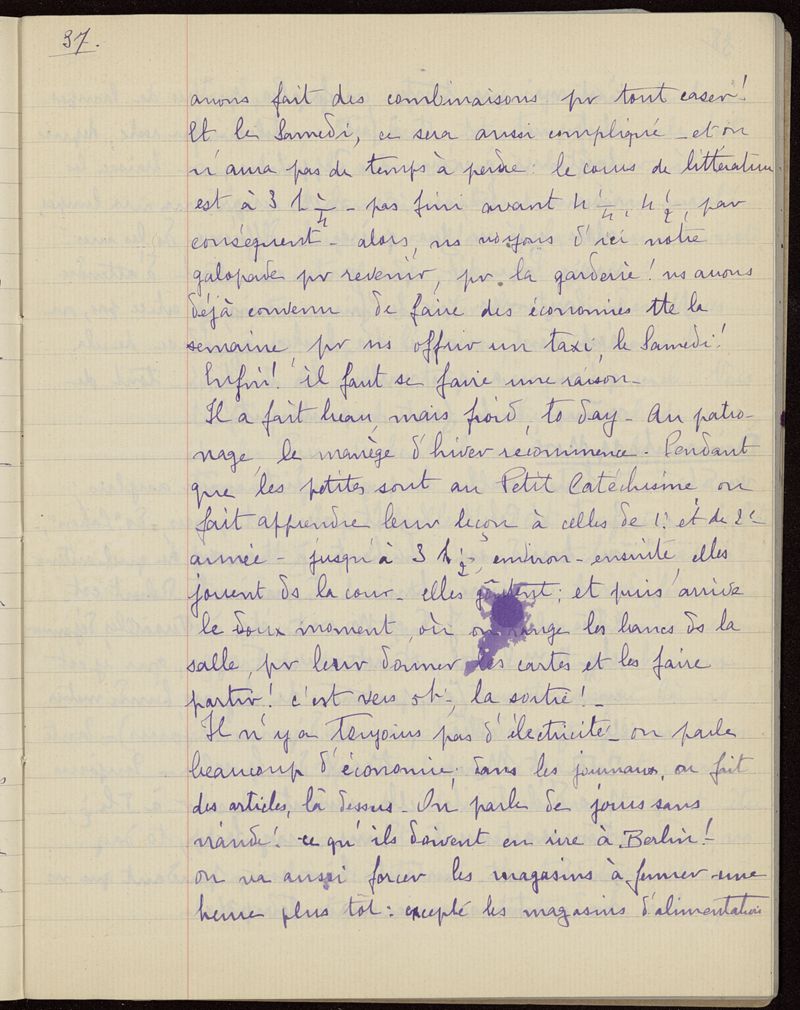 37.
avons fait des combinaisons pr tout caser!
Et le Samedi, ce sera aussi compliqué - et on
n'aura pas de temps à perdre : le cours de littérature
est à 3 h 1/4 - pas fini avant 4 1/4, 4 1/2, par
conséquent - alors, ns voyons d'ici notre
galopade pr revenir, pr la garderie! ns avons
déjà convenu de faire des économies tte la
semaine, pr ns offrir un taxi, le Samedi!
Enfin! il faut se faire une raison -
Il a fait beau, mais froid, to day - Au patro-
nage, le manège d'hiver recommence. Pendant
que les petites sont au Petit Catéchisme, on
fait apprendre leur leçon à celles de 1e et de 2e
année - jusqu'à 3 h 1/2, environ - ensuite, elles
jouent ds la cour - elles goûtent; et puis arrive
le doux moment, où on range les bancs ds la
salle, pr leur donner les cartes et les faire
partir! c'est vers 5h, la sortie! -
Il n'y a toujours pas d'électricité - on parle
beaucoup d'économie; dans les journaux, on fait
des articles, là dessus - On parle de jours sans
viande! ce qu'ils doivent en rire à Berlin!
on va aussi forcer les magasins à fermer une
heure plus tôt : excepté les magasins d'alimentation